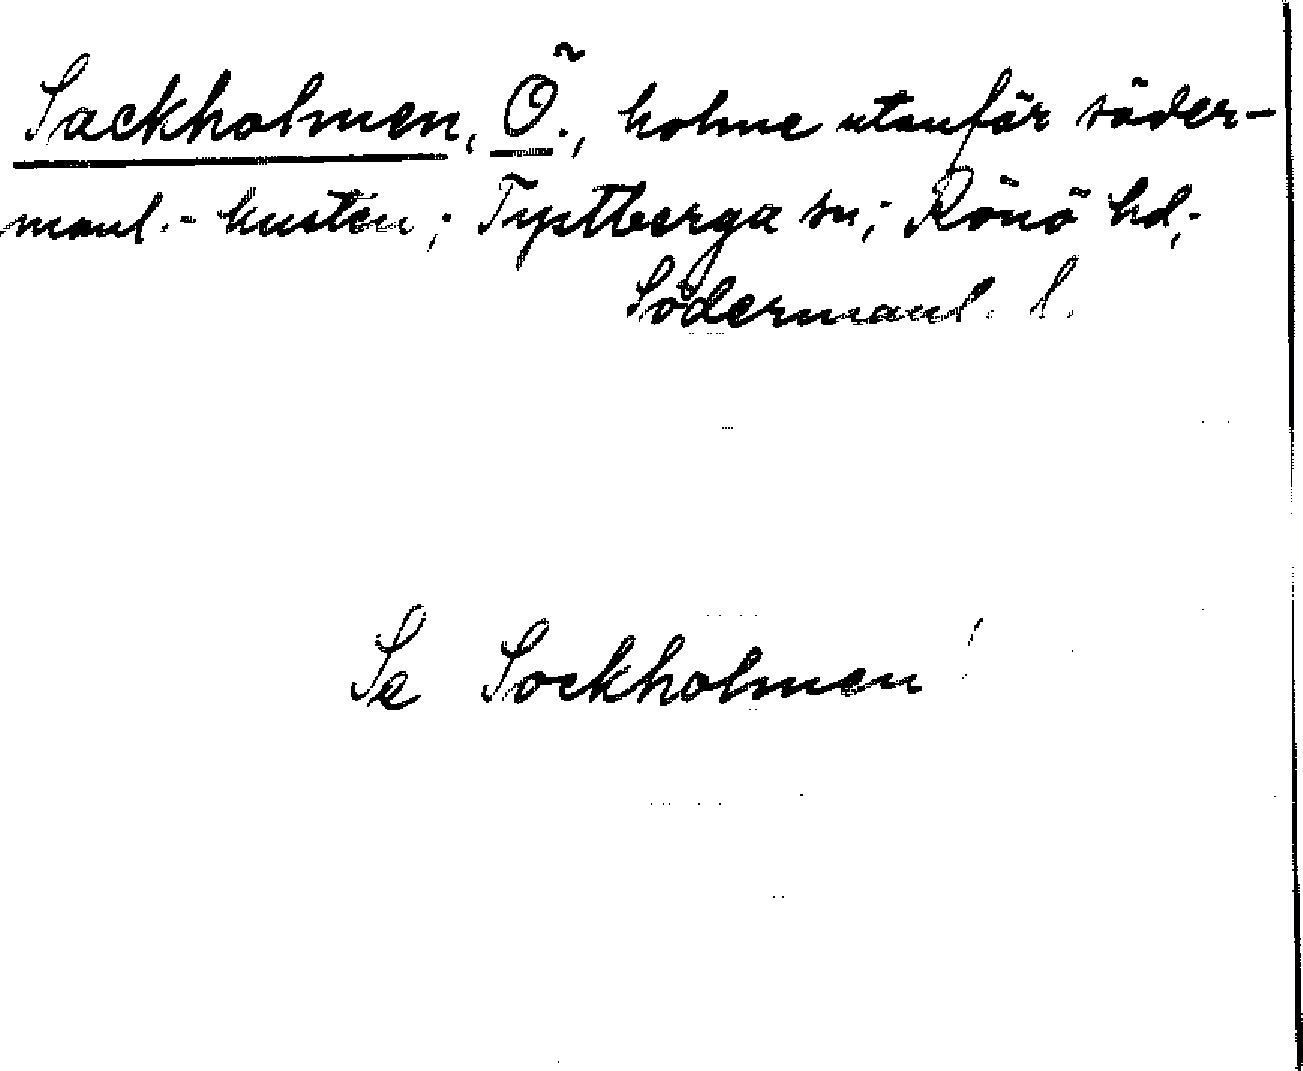 Sackholmen, Ö., holme utanför söder-
manl.-kusten; Tystberga sn; Rönö hd;
Södermanl. l.
Se Sockholmen!